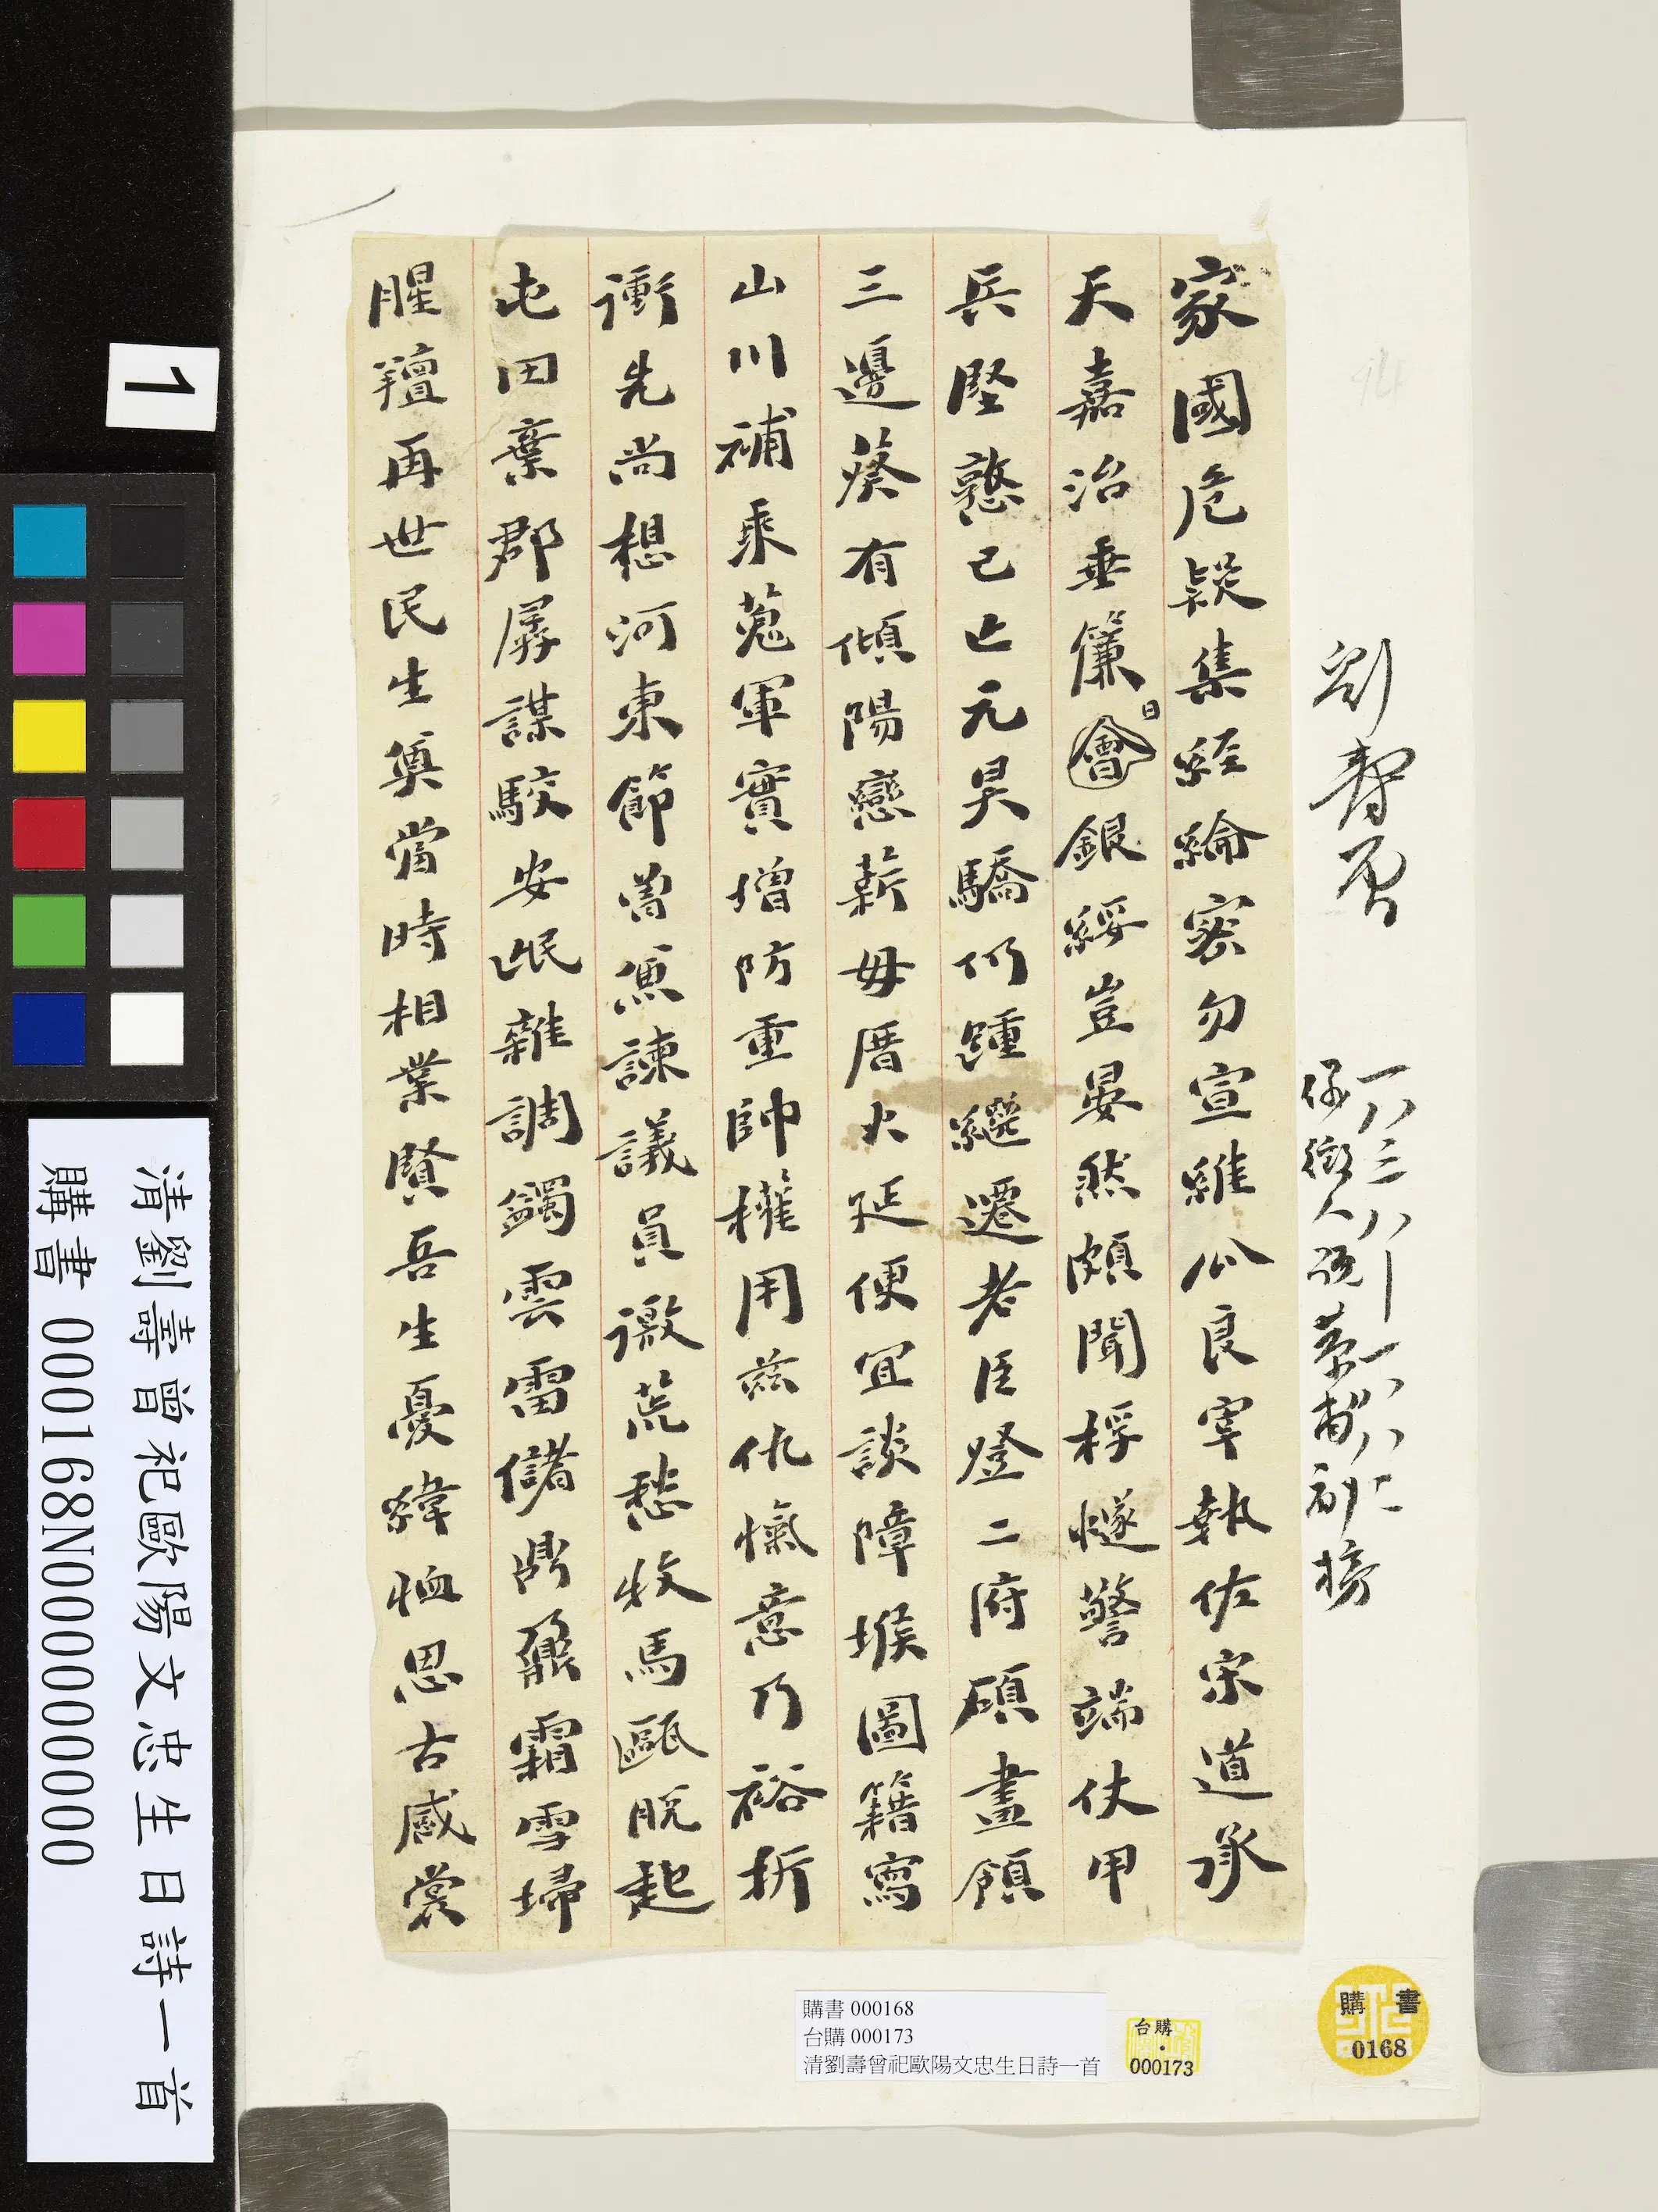 劉壽曾
一八三八—一八八二
儀徵人 號恭甫 副榜
家國危疑集經綸密勿宣維公良宰執佐宋道承
天嘉治垂簾會日銀綬豈晏然頗聞桴燧警端仗甲
兵堅憝已亡元昊驕仍踵繼遷老臣燈二府碩畫領
三邊葵有傾陽戀薪毋厝火延便宜談障堠圖籍寫
山川補乘蒐軍實增防重帥權用茲仇愾意乃裕折
衝先尚想河東節曾兼諫議員徼荒愁牧馬甌脫起
屯田棄郡孱謀駁安氓雜調蠲雲雷儲鼎鼐霜雪埽
腥羶再世民生奠當時相業賢吾生憂緯恤思古感裳
購書 000168
台購 000173
清劉壽曾祀歐陽文忠生日詩一首
台購
000173
購書
0168
1
清劉壽曾祀歐陽文忠生日詩一首
購書 000168N000000000